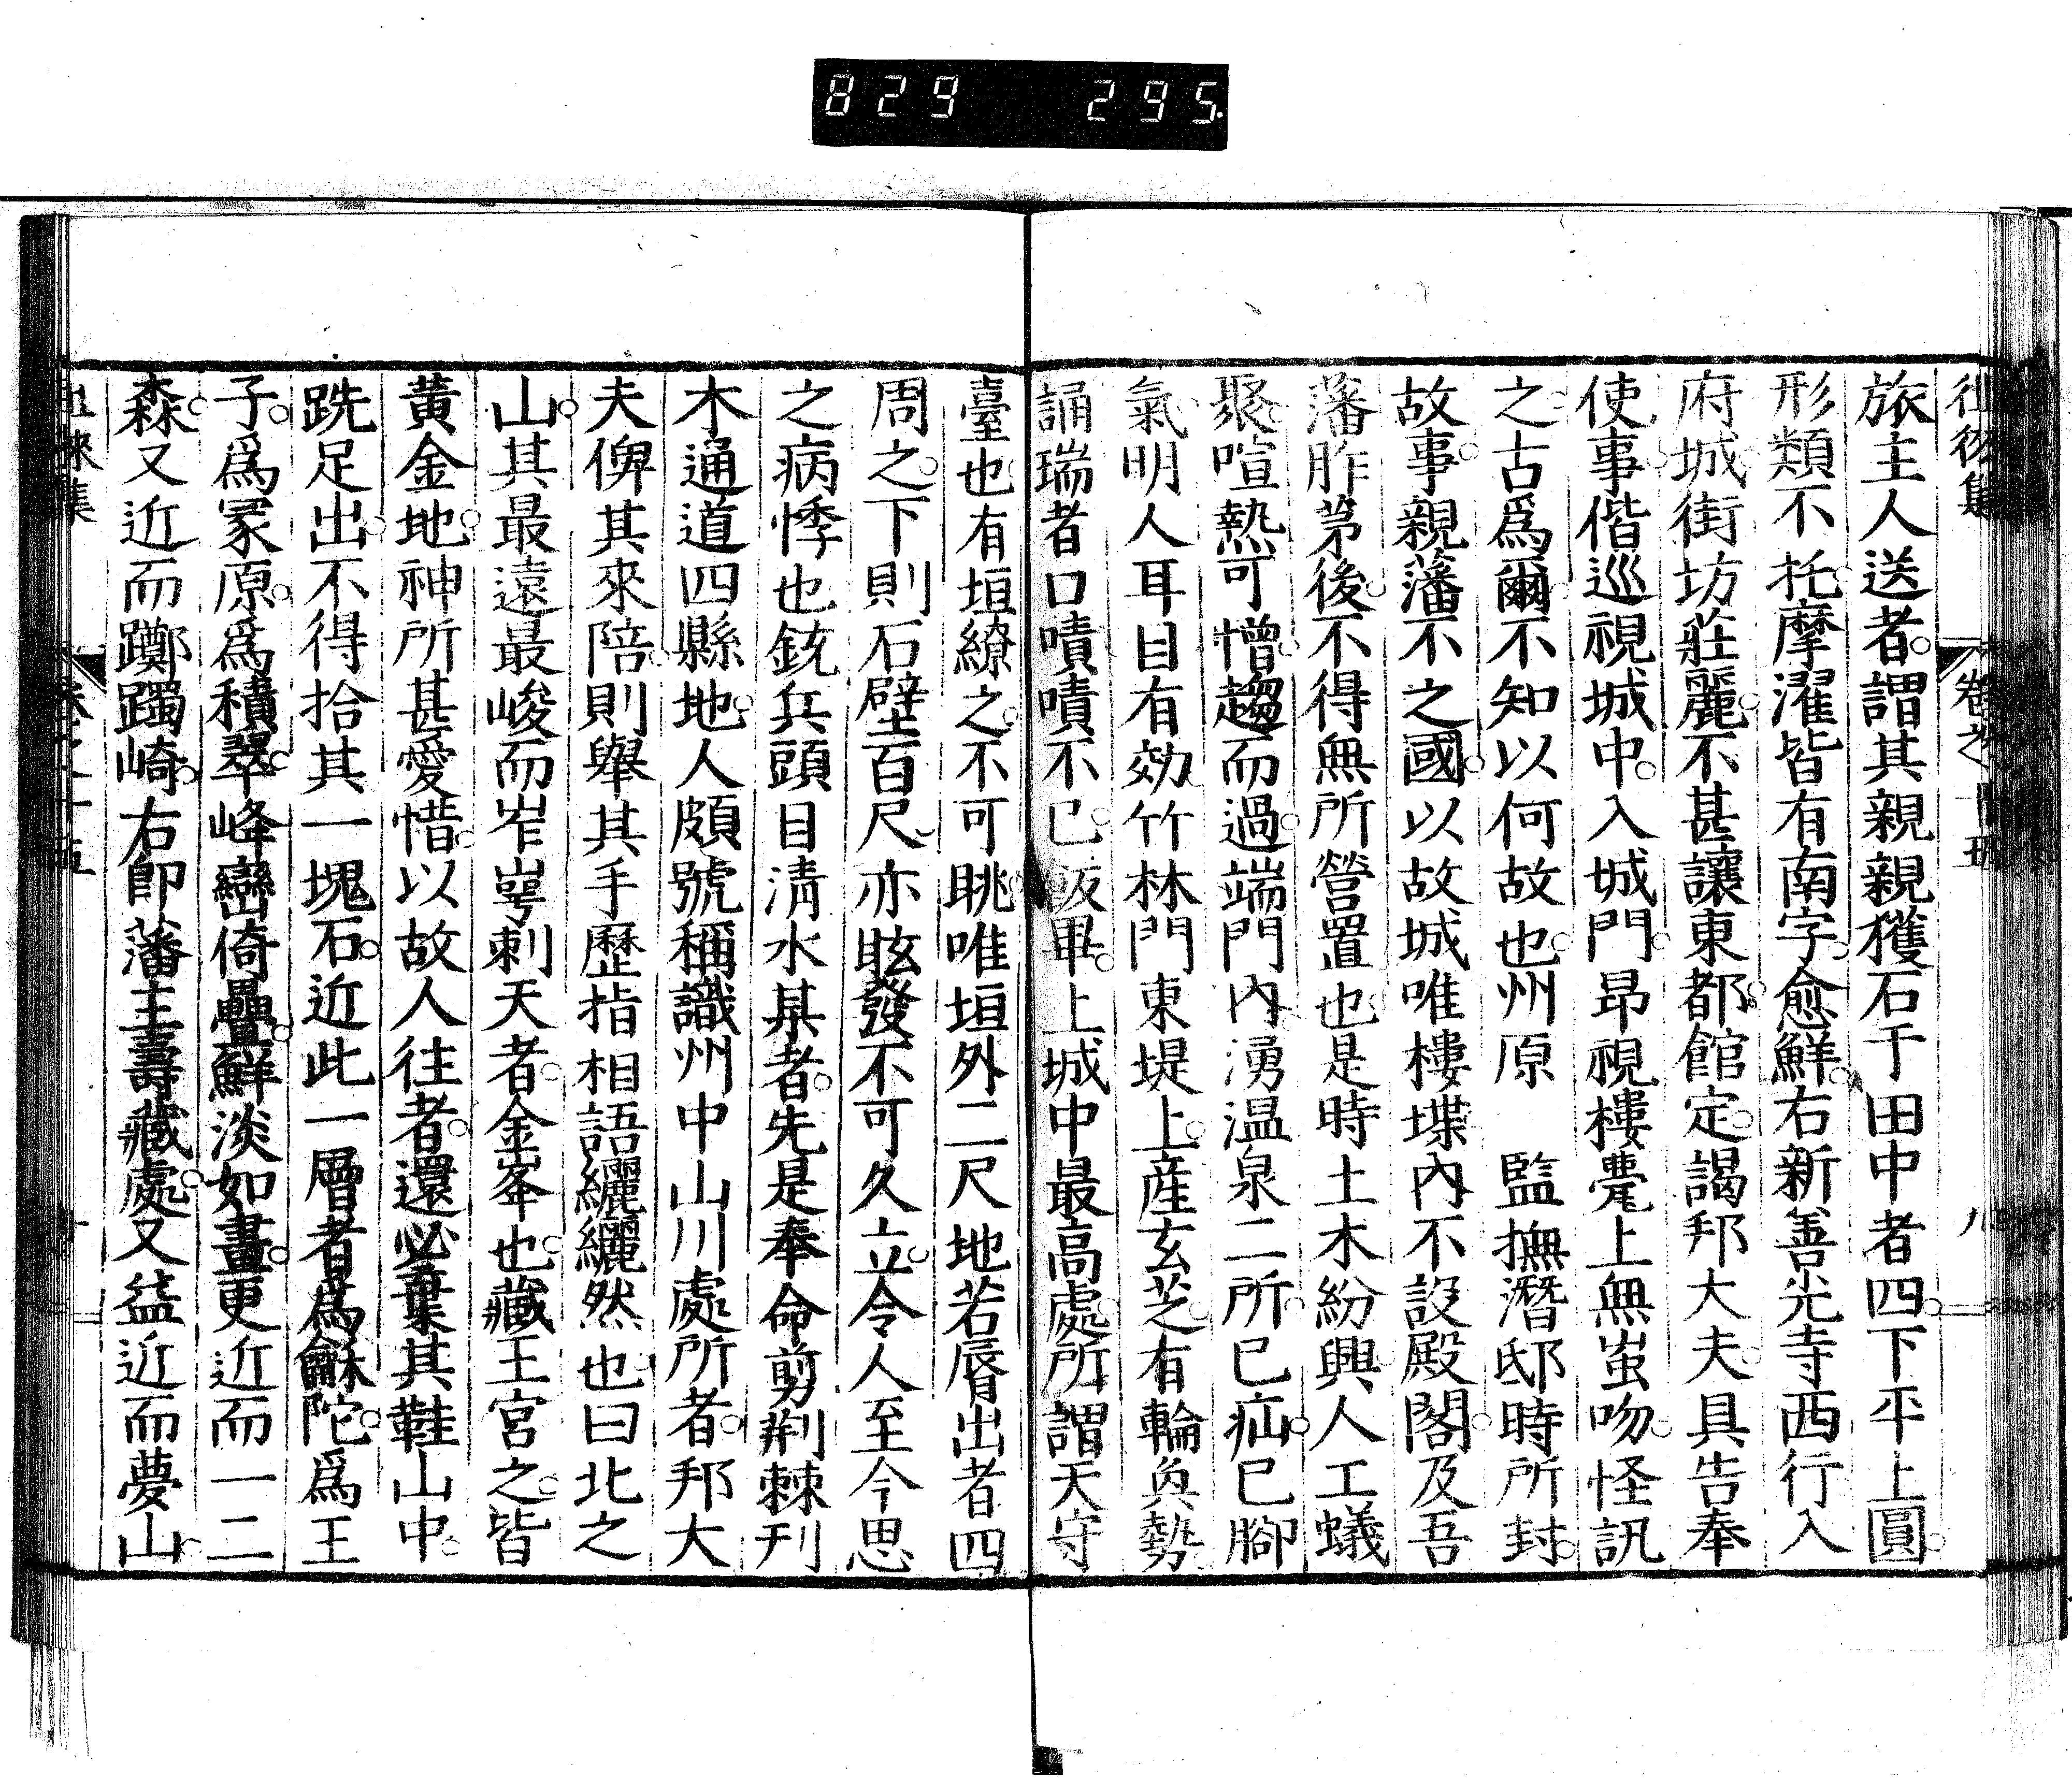 829 295
徂徠集 卷之十五 九
旅主人送者謂其親親獲石于田中者四下平上圓
形類不托摩濯皆有南字愈鮮右新善光寺西行入
府城街坊莊麗不甚讓東都館定謁邦大夫具告奉
使事偕巡視城中入城門昂視樓甍上無蚩吻怪訊
之古爲爾不知以何故也州原 監撫潛邸時所封
故事親藩不之國以故城唯樓堞內不設殿閣及吾
藩胙茅後不得無所營置也是時土木紛興人工蟻
聚喧熱可憎趨而過端門內湧温泉二所已疝已腳
氣明人耳目有効竹林門東堤上産玄芝有輪奐勢
誦瑞者口嘖嘖不已飯畢上城中最高處所謂天守
臺也有垣繚之不可眺唯垣外二尺地若脣出者四
周之下則石壁百尺亦眩發不可久立令人至今思
之病悸也銃兵頭目淸水某者先是奉命剪荆棘刊
木通道四縣地人頗號稱識州中山川處所者邦大
夫俾其來陪則舉其手歷指相語纚纚然也曰北之
山其最遠最峻而岝崿刺天者金峯也藏王宮之皆
黃金地神所甚愛惜以故人往者還必棄其鞋山中
跣足出不得拾其一塊石近此一層者爲龢陀爲王
子爲冢原爲積翠峰巒倚疊鮮淡如畫更近而一二
森又近而躑躅崎右卽藩主壽藏處又益近而夢山
徂徠集 卷之十五